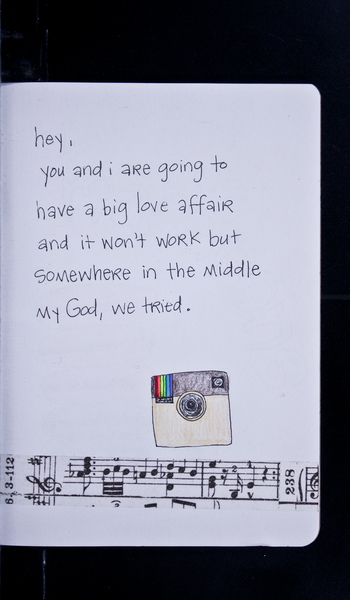 hey,
you and i are going to
have a big love affair
and it won't work but
somewhere in the middle
my God, we tried.
6-3-112
238